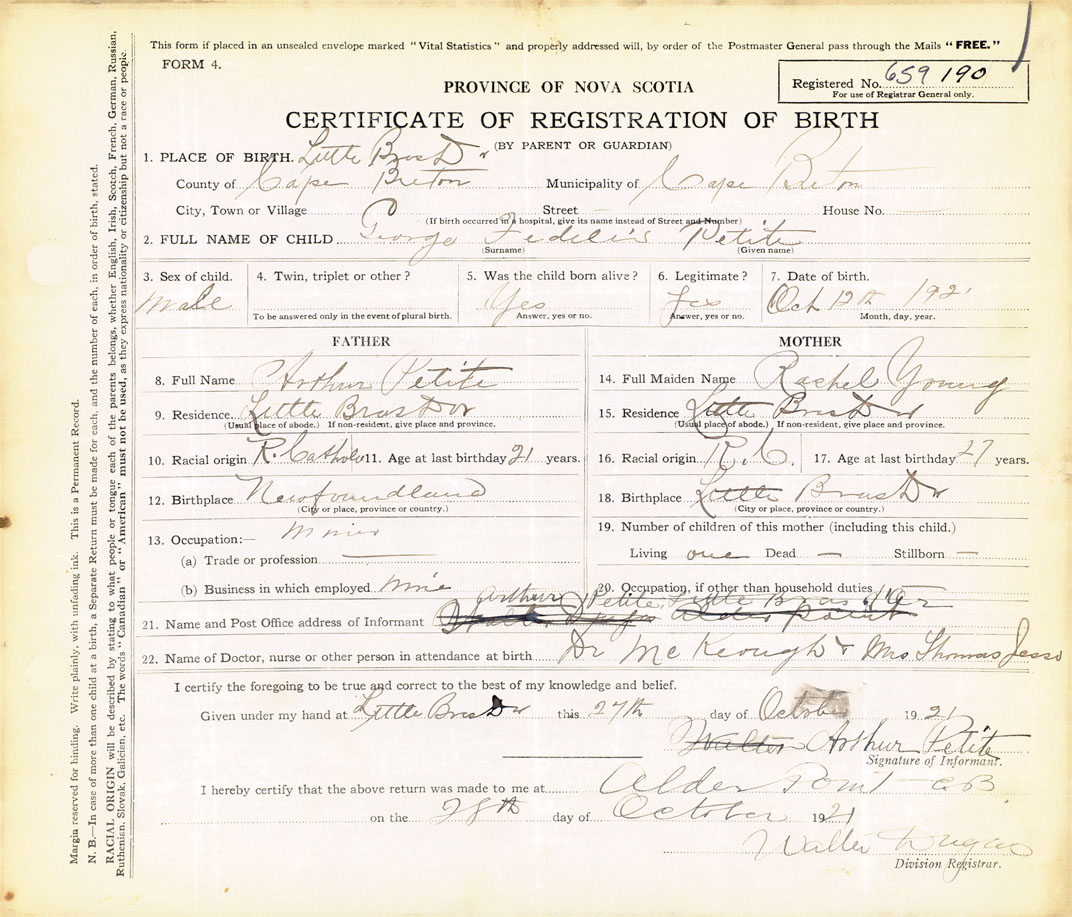 This form if placed in an unsealed envelope marked "Vital Statistics" and properly addressed will, by order of the Postmaster General pass through the Mails "FREE."
FORM 4.
Registered No. 659 190
For use of Registrar General only.
PROVINCE OF NOVA SCOTIA
CERTIFICATE OF REGISTRATION OF BIRTH
(BY PARENT OR GUARDIAN)
1. PLACE OF BIRTH. Little Bras D'or
County of Cape Breton Municipality of Cape Breton
City, Town or Village Street House No.
(If birth occurred in a hospital, give its name instead of Street and Number)
2. FULL NAME OF CHILD George Fedelis Petite
(Surname) (Given name)
3. Sex of child. 4. Twin, triplet or other? 5. Was the child born alive? 6. Legitimate? 7. Date of birth.
Male Yes Yes Oct 12th 1921
To be answered only in the event of plural birth. Answer, yes or no. Answer, yes or no. Month, day, year.
FATHER MOTHER
8. Full Name Arthur Petite 14. Full Maiden Name Rachel Young
9. Residence Little Bras Dor 15. Residence Little Bras Dor
(Usual place of abode.) If non-resident, give place and province. (Usual place of abode.) If non-resident, give place and province.
10. Racial origin R. Catholic 11. Age at last birthday 21 years. 16. Racial origin R.C. 17. Age at last birthday years.
12. Birthplace Newfoundland 18. Birthplace Little Bras Dor
(City or place, province or country.) (City or place, province or country.)
13. Occupation:— Miner 19. Number of children of this mother (including this child.)
(a) Trade or profession Living one Dead — Stillborn —
(b) Business in which employed Mine 20. Occupation, if other than household duties
Arthur Petite, Little Bras d'Or
21. Name and Post Office address of Informant Walter Dugas Alder Point
22. Name of Doctor, nurse or other person in attendance at birth Dr McKeough & Mrs Thomas Jesso
I certify the foregoing to be true and correct to the best of my knowledge and belief.
Given under my hand at Little Bras Dor this 27th day of October 1921
Walter Arthur Petite
Signature of Informant.
I hereby certify that the above return was made to me at Alder Point CB
on the 28th day of October 1921
Walter Dugas
Division Registrar.
Margin reserved for binding. Write plainly, with unfading ink. This is a Permanent Record.
N. B.—In case of more than one child at a birth, a Separate Return must be made for each, and the number of each, in order of birth, stated.
RACIAL ORIGIN will be described by stating to what people or tongue each of the parents belongs, whether English, Irish, Scotch, French, German, Russian,
Ruthenian, Slovak, Galician, etc. The words "Canadian" or "American" must not be used, as they express nationality or citizenship but not a race or people.